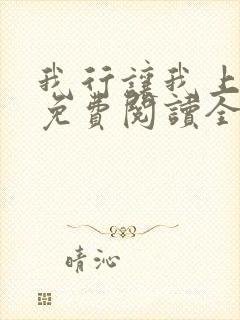 我行讓我上
免費閱讀全
晴沁